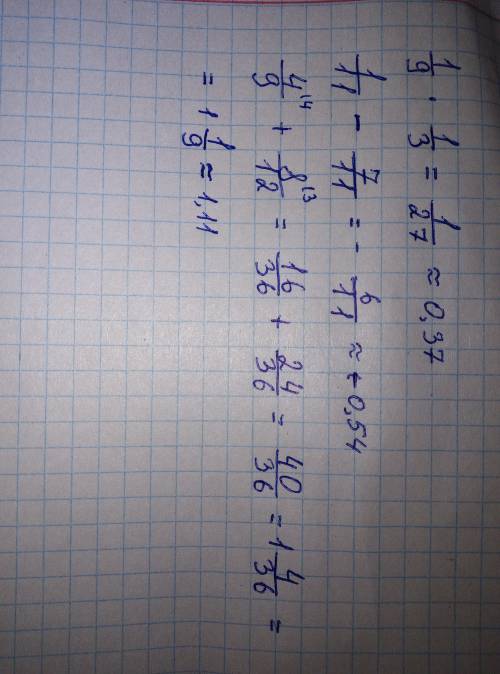 1/9 · 1/3 = 1/27 ≈ 0,37
1/11 - 7/11 = - 6/11 ≈ - 0,54
4/9 ^{14} + 8/12 ^{13} = 16/36 + 24/36 = 40/36 = 1 4/36 =
= 1 1/9 ≈ 1,11